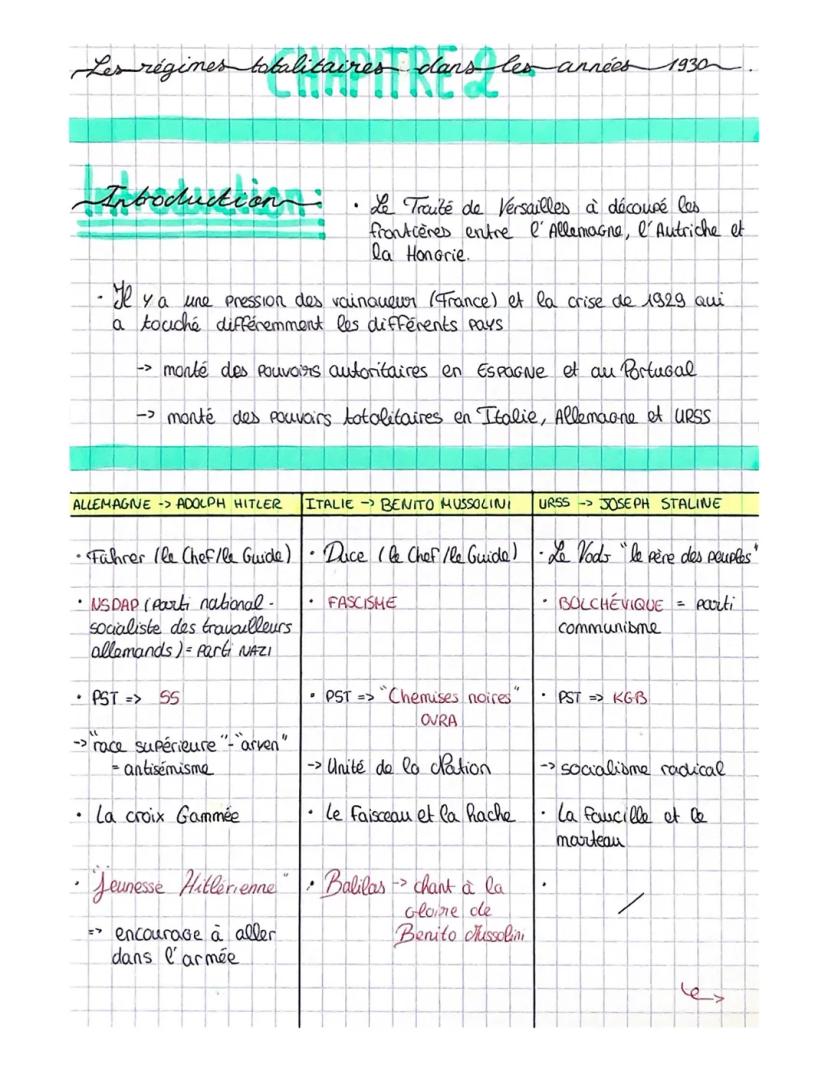 CHAPITRE 2
Les régimes totalitaires dans les années 1930.
Introduction :
• Le Traité de Versailles à découpé les
frontières entre l'Allemagne, l'Autriche et
la Hongrie.
• Il y a une pression des vainqueur (France) et la crise de 1929 qui
a touché différemment les différents pays
-> monté des pouvoirs autoritaires en ESPAGNE et au Portugal
-> monté des pouvoirs totalitaires en Italie, Allemagne et URSS
ALLEMAGNE -> ADOLPH HITLER
• Führer (le Chef/le Guide)
• NSDAP (Parti national-
socialiste des travailleurs
allemands) = Parti NAZI
• PST => SS
-> "race supérieure" - "aryen"
= antisémisme
• La croix Gammée
• "Jeunesse Hitlérienne"
=> encourage à aller
dans l'armée
ITALIE -> BENITO MUSSOLINI
• Duce (le Chef/le Guide)
• FASCISME
• PST => "Chemises noires"
OVRA
-> Unité de la Nation
• Le Faisceau et la Hache
• Balilas -> chant à la
gloire de
Benito Mussolini
URSS -> JOSEPH STALINE
• Le Vodj "le père des peuples"
• BOLCHÉVIQUE = parti
communisme
• PST => KGB
-> socialisme radical
• La Faucille et le
marteau
• /